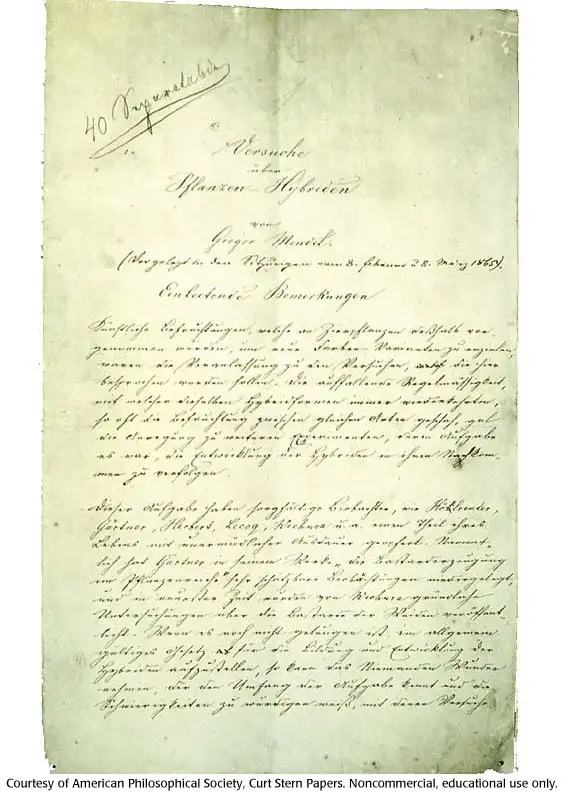 40 Separatabdr
Versuche
über
Pflanzen-Hybriden
von
Gregor Mendel.
(Vorgelegt in den Sitzungen vom 8. Februar u 8. März 1865).
Einleitende Bemerkungen
Künstliche Befruchtungen, welche an Zierpflanzen deßhalb vor-
genommen wurden, um neue Farben-Varianten zu erzielen,
waren die Veranlassung zu den Versuchen, die hier
besprochen werden sollen. Die auffallende Regelmässigkeit,
mit welcher dieselben Hybridformen immer wiederkehrten,
so oft die Befruchtung zwischen gleichen Arten geschah, gab
die Anregung zu weiteren Experimenten, deren Aufgabe
es war, die Entwicklung der Hybriden in ihren Nachkom-
men zu verfolgen.
Dieser Aufgabe haben sorgfältige Beobachter, wie Kölreuter,
Gärtner, Herbert, Lecoq, Wichura u. a. einen Theil ihres
Lebens mit unermüdlicher Ausdauer geopfert. Nament-
lich hat Gärtner in seinem Werke „die Bastarderzeugung
im Pflanzenreiche" sehr schätzbare Beobachtungen niedergelegt,
und in neuester Zeit wurden von Wichura gründliche
Untersuchungen über die Bastarde der Weiden veröffent-
licht. Wenn es noch nicht gelungen ist, ein allgemein
giltiges Gesetz für die Bildung und Entwicklung der
Hybriden aufzustellen, so kann das Niemanden Wunder
nehmen, der den Umfang der Aufgabe kennt und die
Schwierigkeiten zu würdigen weiß, mit denen Versuche
Courtesy of American Philosophical Society, Curt Stern Papers. Noncommercial, educational use only.